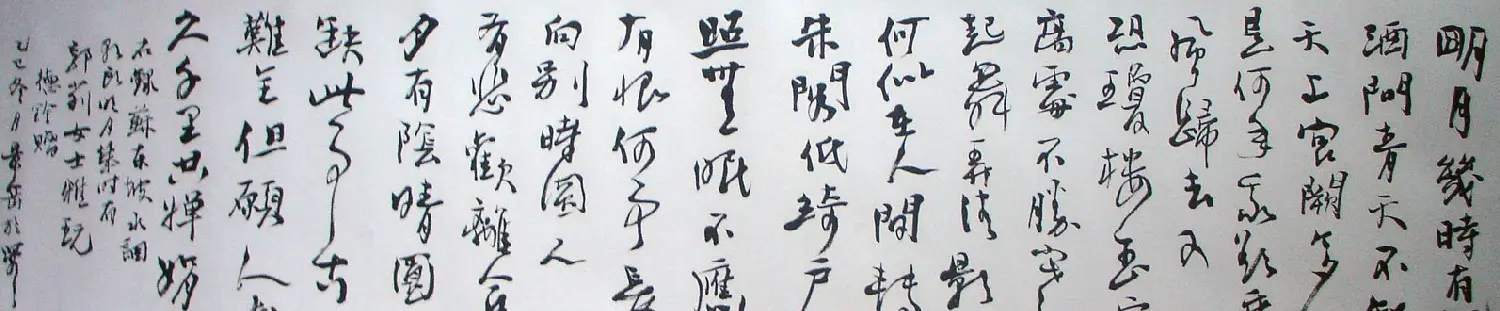 明月幾時有
酒問青天不知
天上宮闕今夕
是何年我欲乘
風歸去又
恐瓊樓玉宇
高處不勝寒
起舞弄清影
何似在人間轉
朱閣低綺戶
照無眠不應
有恨何事長
向別時圓人
有悲歡離合
月有陰晴圓
缺此事古
難全但願人長
久千里共嬋娟
右錄蘇東坡水調
歌頭明月幾時有
郭莉女士雅玩
德鈴贈
乙巳冬月景岳於